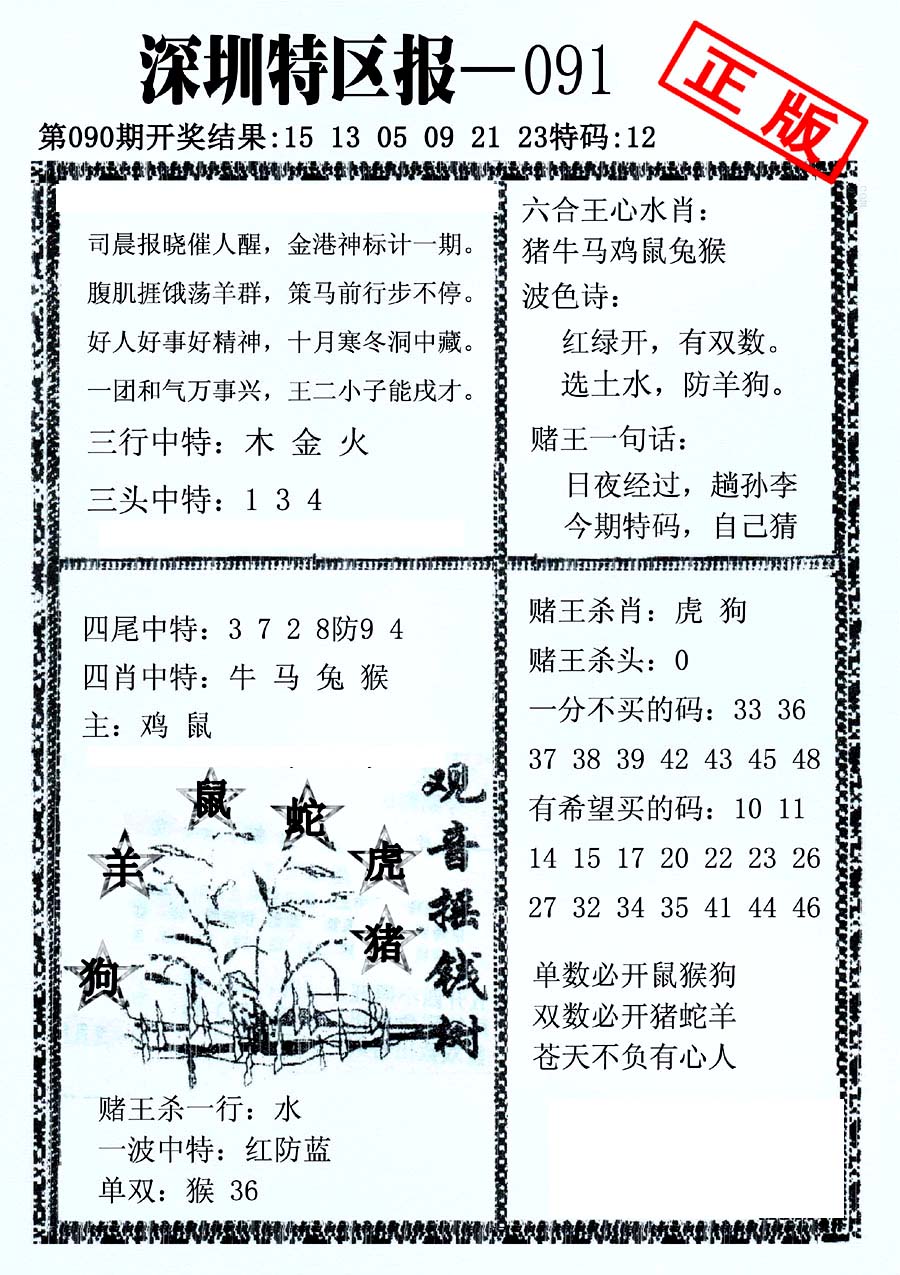 深圳特区报—091
正版
第090期开奖结果:15 13 05 09 21 23特码:12
司晨报晓催人醒，金港神标计一期。
腹肌捱饿荡羊群，策马前行步不停。
好人好事好精神，十月寒冬洞中藏。
一团和气万事兴，王二小子能戌才。
三行中特：木 金 火
三头中特：1 3 4
六合王心水肖：
猪牛马鸡鼠兔猴
波色诗：
红绿开，有双数。
选土水，防羊狗。
赌王一句话：
日夜经过，趟孙李
今期特码，自己猜
四尾中特：3 7 2 8防9 4
四肖中特：牛 马 兔 猴
主：鸡 鼠
鼠
蛇
羊
虎
猪
狗
观音摇钱树
赌王杀一行：水
一波中特：红防蓝
单双：猴 36
赌王杀肖：虎 狗
赌王杀头：0
一分不买的码：33 36
37 38 39 42 43 45 48
有希望买的码：10 11
14 15 17 20 22 23 26
27 32 34 35 41 44 46
单数必开鼠猴狗
双数必开猪蛇羊
苍天不负有心人